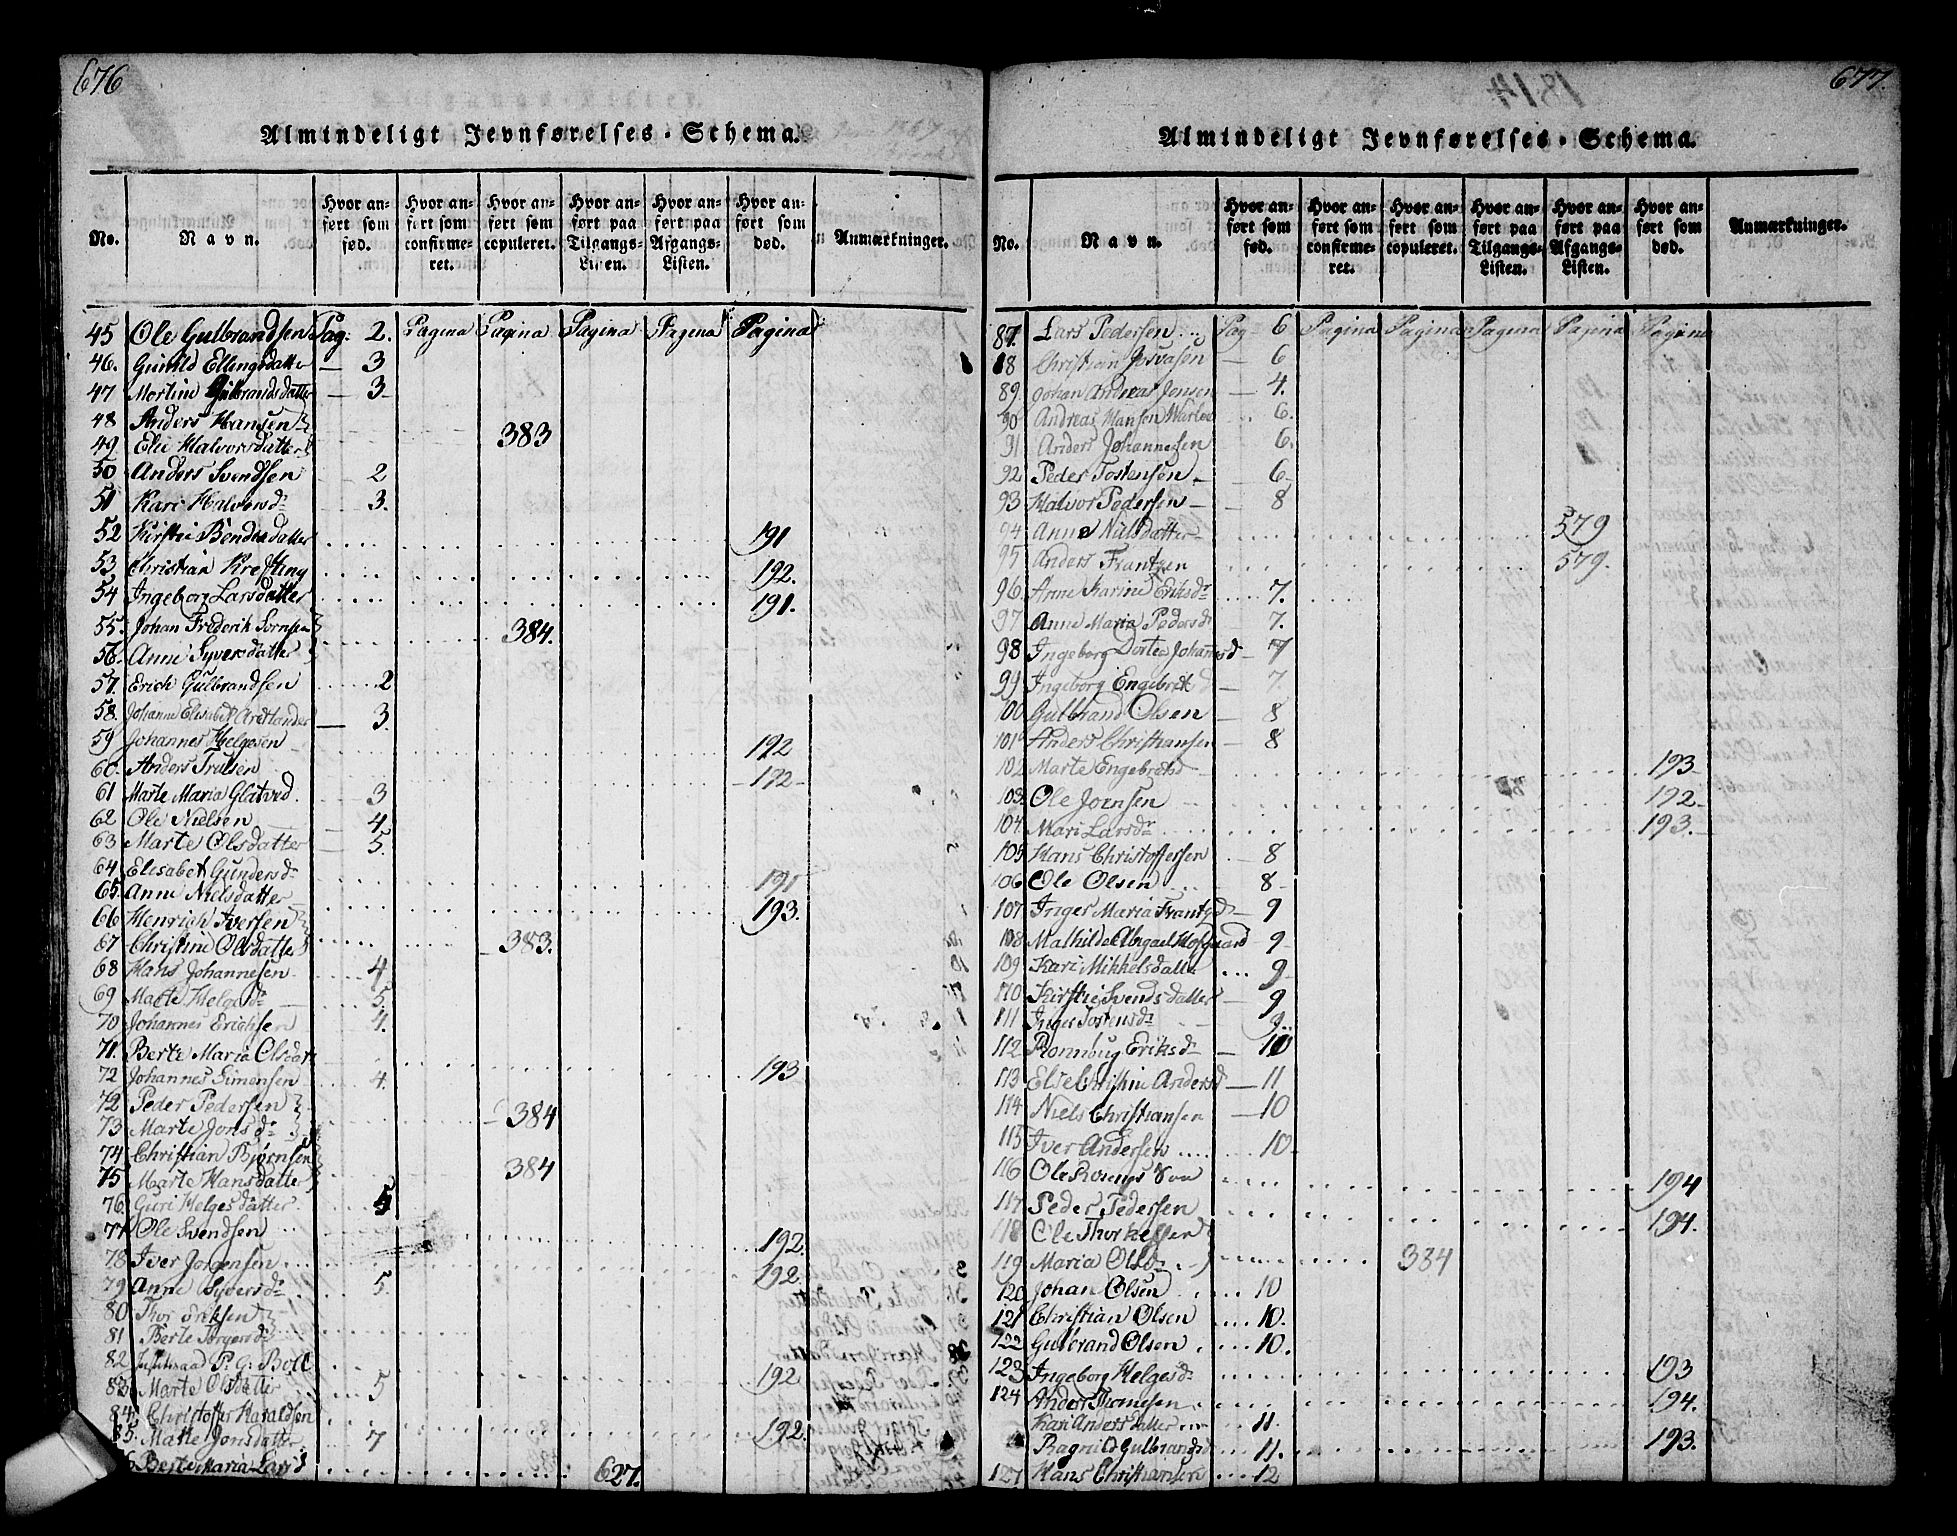 676
Almindeligt Jevnførelses-Schema.
No. Navn. Hvor anført som fød. Hvor anført som confirmeret. Hvor anført som copuleret. Hvor anført paa Tilgangs-Listen. Hvor anført paa Afgangs-Listen. Hvor anført som død. Anmærkninger.
45 Ole Gulbrandsen Pag: 2. Pagina Pagina Pagina Pagina Pagina
46. Gunild Ellingsdatter 3
47 Mortine Gulbrandsdatter 3
48 Anders Hansen
49 Elie Halvorsdatter 383
50 Anders Svendsen 2
51 Kari Halvorsdr 3.
52 Kirstie Bendtsdatter 191
53 Christian Krefting 192.
54 Ingeborg Larsdatter 191.
55. Johan Friderik Sørnsen 384.
56. Anne Syversdatter
57. Erich Gulbrandsen 2
58. Johanne Elisabet 3.
59 Johannes Helgesen 192
60. Anders Trulsen 192
61 Marte Maria Glatved 3
62 Ole Nielsen 4
63 Marte Olsdatter 5.
64 Elisabet Gundersd 191
65. Anne Nielsdatter 193.
66 Henrich Iversen
67 Christine Olsdatter 383.
68 Hans Johannesen 4
69 Marte Helgesdr 5.
70 Johannes Erichsen 4.
71. Berte Maria Olsdatr 193
72 Johannes Simensen 4.
72 Peder Pedersen
73 Marte Jonsdr 384
74 Christian Bjørnsen
75 Marte Hansdatter 384
76. Guri Helgesdatter 5
77 Ole Svendsen 192.
78 Iver Jørgensen 192.
79 Anne Syversdr 5.
80 Thor Eriksen
81 Berte
82 P. G. Boll 192
83. Marte Olsdatter 5
84. Christoffer Haraldsen 192.
85. Marte Jonsdatter 7
6 Berte Maria Larsd 627.
677.
Almindeligt Jevnførelses-Schema.
No. Navn. Hvor anført som fød. Hvor anført som confirmeret. Hvor anført som copuleret. Hvor anført paa Tilgangs-Listen. Hvor anført paa Afgangs-Listen. Hvor anført som død. Anmærkninger.
87. Lars Pedersen Pag 6 Pagina Pagina Pagina Pagina Pagina
88 Christian Josvasen 6
89. Johan Andreas Jensen 4.
90 Andreas Hansen 6.
91 Anders Johannesen 6.
92 Peder Tostensen 6
93 Halvor Pedersen 8
94 Anne Nilsdatter 579
95 Anders Frantzen 579.
96. Anne Karine Eriksdr 7.
97 Anne Maria Pedersdr 7.
98 Ingeborg Dortea Johannesd 7
99 Ingeborg Engebretsd 7.
100 Gulbrand Olsen 8
101 Anders Christiansen 8
102 Marte Engebretsd 193
103. Ole Jørnsen 192
104. Mari Larsdr 193.
105 Hans Christoffersen 8
106 Ole Olsen 8
107. Inger Maria Frantzd 9
108 Mathilde Abigael Hofgaard 9
109 Kari Mikkelsdatter 9
110 Kirstie Svendsdatter 9
111 Inger Tostensdr 9
112 Ronnbug Eriksd 10
113 Else Christine Andersd 11
114 Niels Christiansen 10
115 Iver Andersen 10
116 Ole 194
117 Peder Pedersen 194.
118 Ole Thorkelsen
119 Maria Olsdr 334
120 Johan Olsen 10
121 Christian Olsen 10.
122 Gulbrand Olsen 10.
123 Ingeborg Helgesdr 193
124 Anders Thomesen 194.
Kari Andersdatter 11.
Ragnild Gulbrandsd 11. 193.
127 Hans Christiansen 12